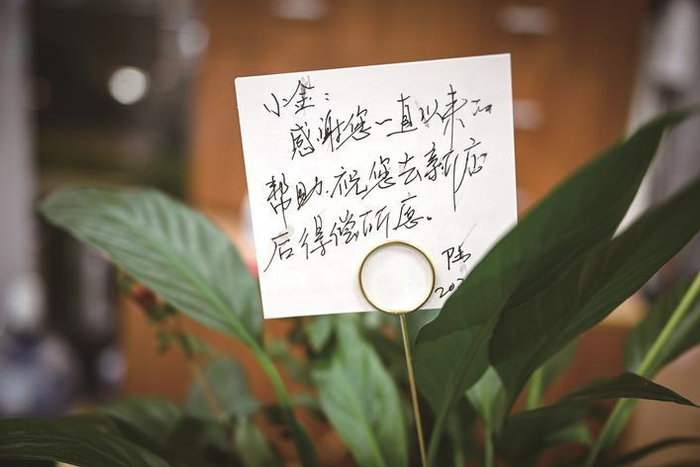 小金：
感谢您一直以来的
帮助.祝您去新店
后得偿所愿。
陈
202